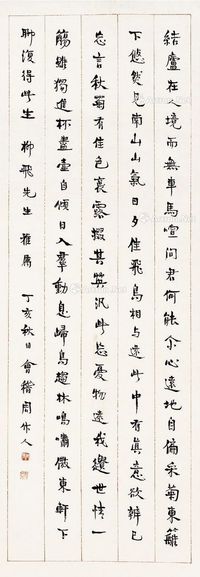 結廬在人境而無車馬喧問君何能尒心遠地自偏采菊東籬
下悠然見南山山氣日夕佳飛鳥相與還此中有真意欲辨已
忘言秋菊有佳色裛露掇其英汎此忘憂物遠我遺世情一
觴雖獨進杯盡壺自傾日入羣動息歸鳥趨林鳴嘯傲東軒下
聊復得此生 柳飛先生 雅屬 丁亥秋日會稽周作人